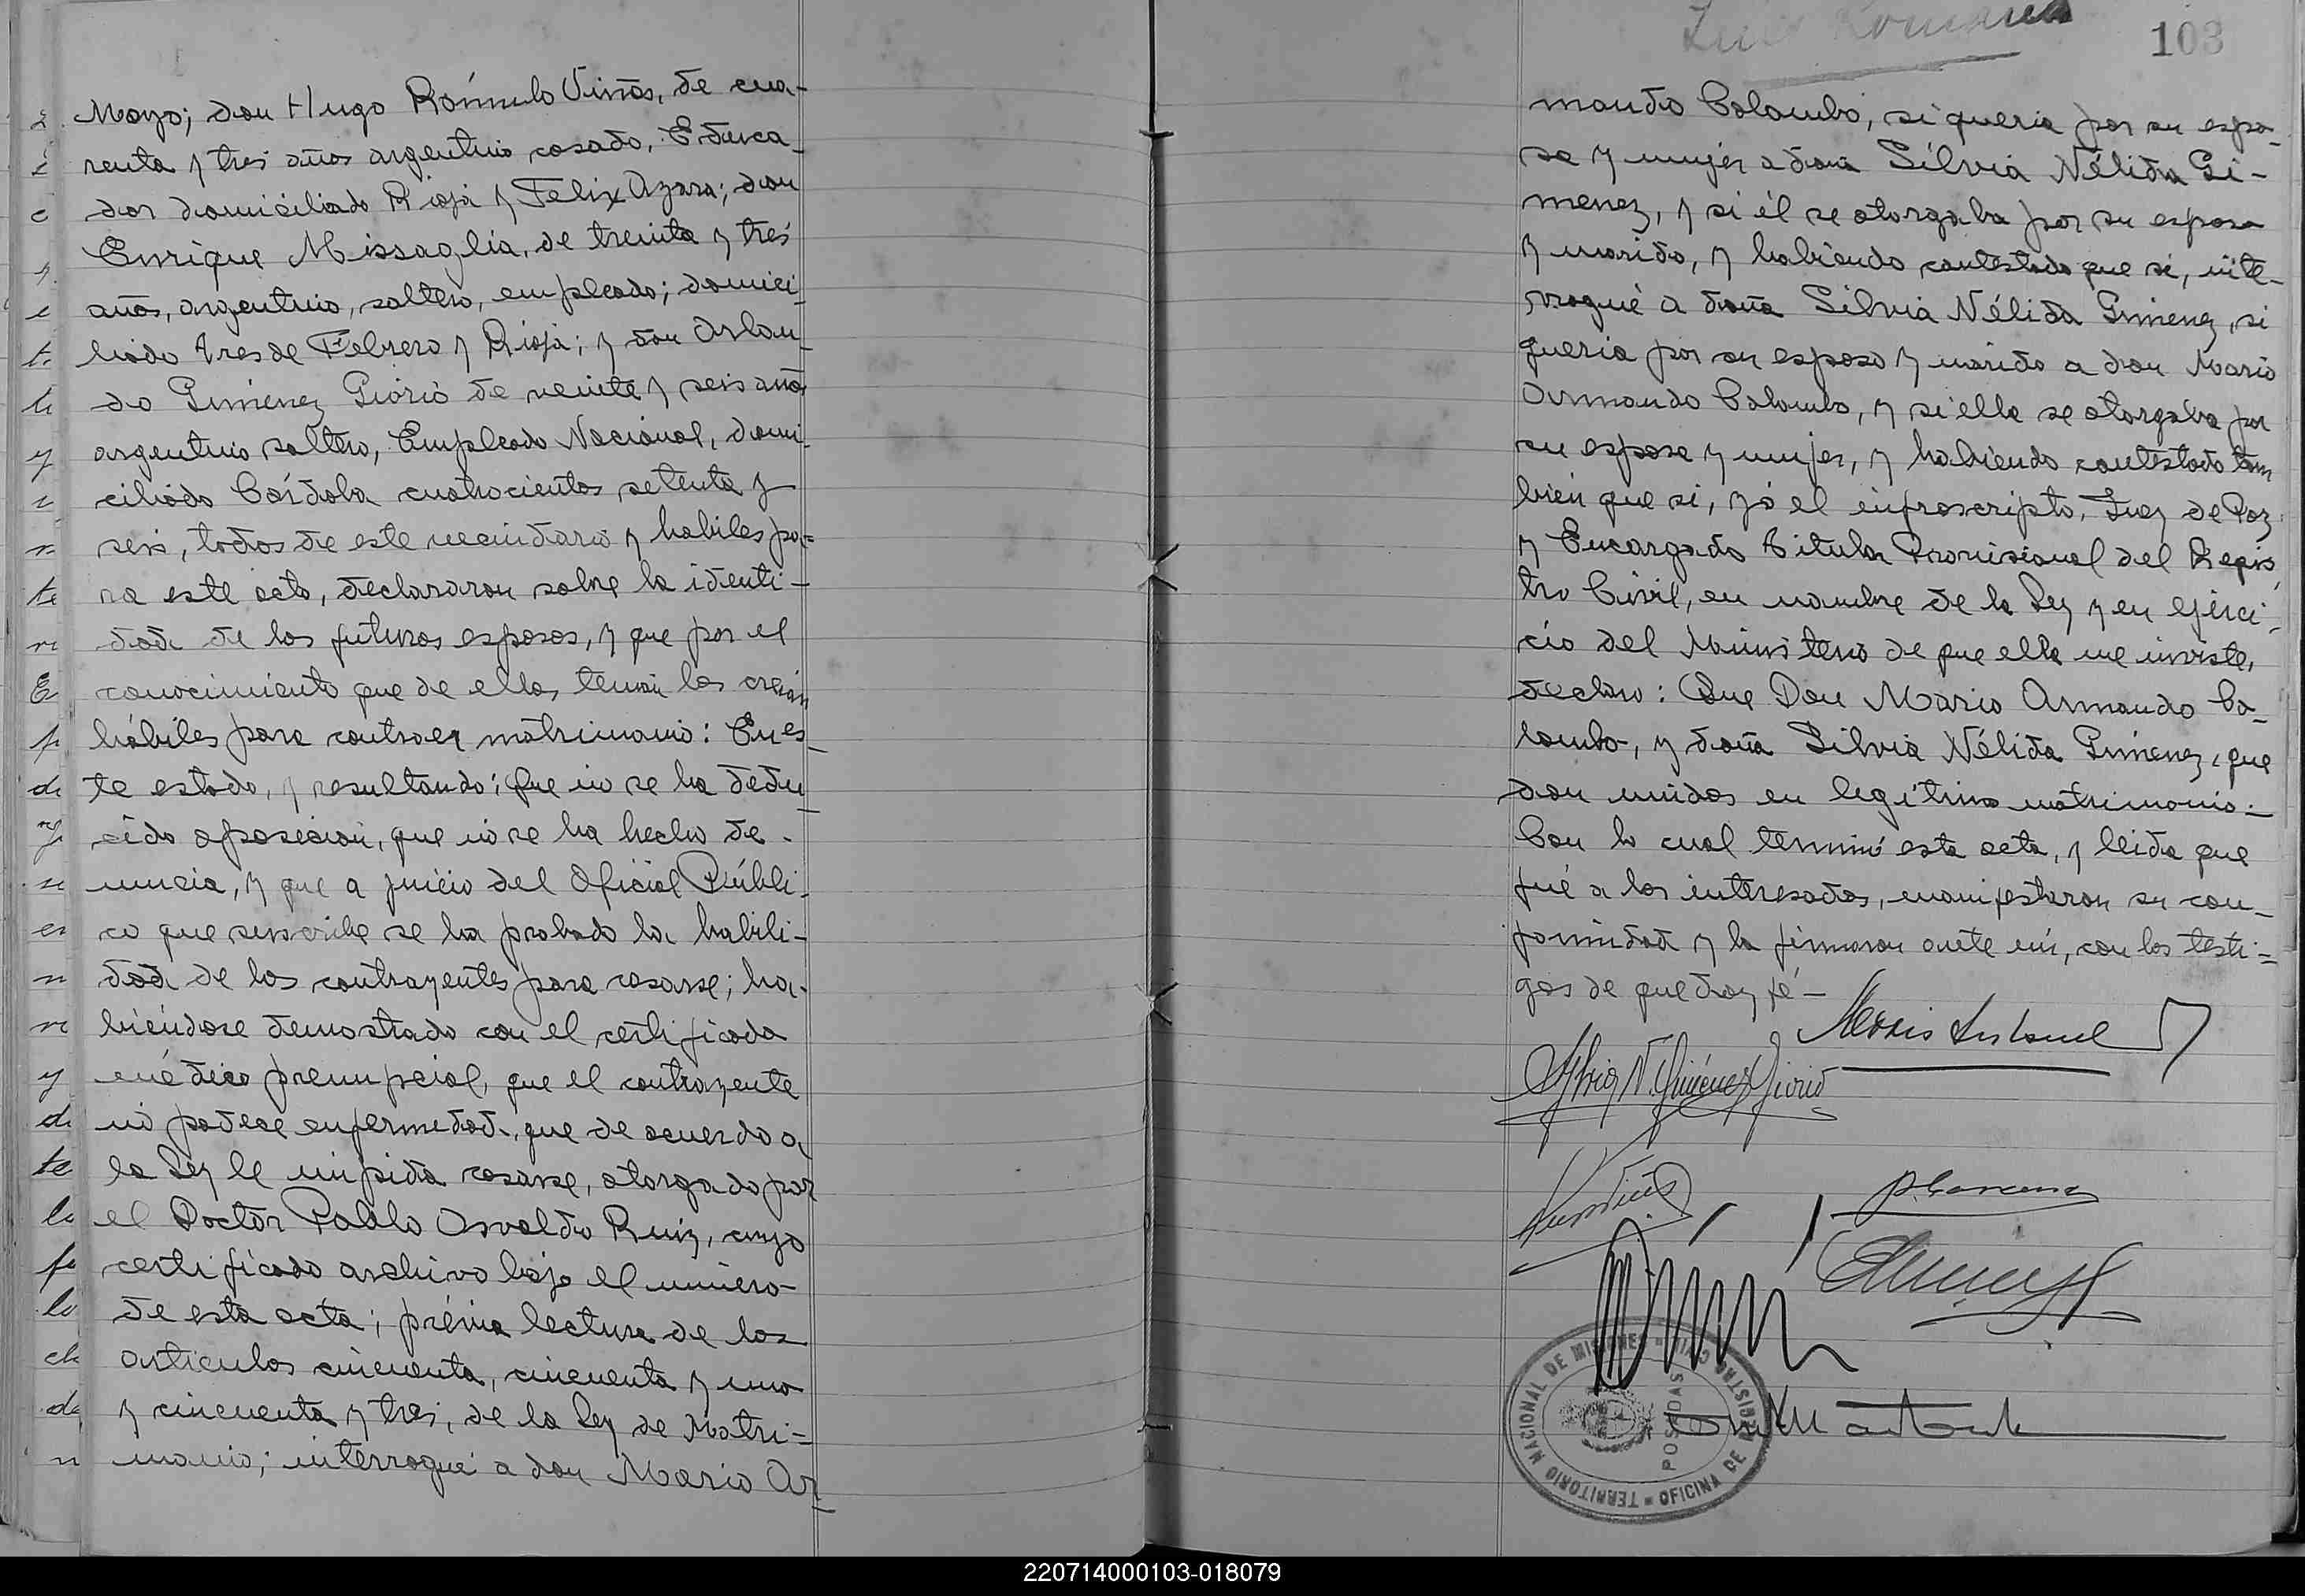 Mayo; don Hugo Rómulo Viñas, de cua-
renta y tres años argentino casado, Educa-
dor domiciliado Rioja y Felix Azara; don
Enrique Missaglia, de treinta y tres
años, argentino, soltero, empleado; domici-
liado Tres de Febrero y Rioja; y don Orlan-
do Gimenez Giorio de veinte y seis años
argentino soltero, Empleado Nacional, domi-
ciliado Córdoba cuatrocientos setenta y
seis, todos de este vecindario y habiles pa-
ra este acto, declararon sobre la identi-
dad de los futuros esposos, y que por el
conocimiento que de ellos tenian los creian
hábiles para contraer matrimonio: En es-
te estado, y resultando: Que no se ha dedu-
cido oposición, que no se ha hecho de-
nuncia, y que a juicio del Oficial Públi-
co que suscribe se ha probado la habili-
dad de los contrayentes para casarse; ha-
biéndose demostrado con el certificado
médico prenupcial, que el contrayente
no padece enfermedad, que de acuerdo a
la Ley le impida casarse, otorgado por
el Doctor Pablo Osvaldo Ruiz, cuyo
certificado archivo bajo el número
de esta acta; prévia lectura de los
articulos cincuenta, cincuenta y uno
y cincuenta y tres, de la Ley de Matri-
monio; interrogué a don Mario Ar-
103
mando Colombo, si queria por su espo-
sa y mujer a doña Silvia Nélida Gi-
menez, y si él se otorgaba por su esposo
y marido, y habiendo contestado que si, inte-
rrogué a doña Silvia Nélida Gimenez, si
queria por su esposo y marido a don Mario
Armando Colombo, y si ella se otorgaba por
su esposa y mujer, y habiendo contestado tam
bien que si, yó el infrascripto, Juez de Paz
y Encargado Titular Provisional del Regis
tro Civil, en nombre de la Ley y en ejerci-
cio del Ministerio de que ella me inviste,
declaro: Que Don Mario Armando Co-
lombo, y doña Silvia Nélida Gimenez, que
dan unidos en legítimo matrimonio.-
Con lo cual terminó esta acta, y leida que
fué a los interesados, manifestaron su con-
formidad y la firmaron ante mí, con los testi-
gos de que doy fé-
Sylvia N. Giménez Giorio
TERRITORIO NACIONAL DE MISIONES
OFICINA DE REGISTRO CIVIL
POSADAS
220714000103-018079